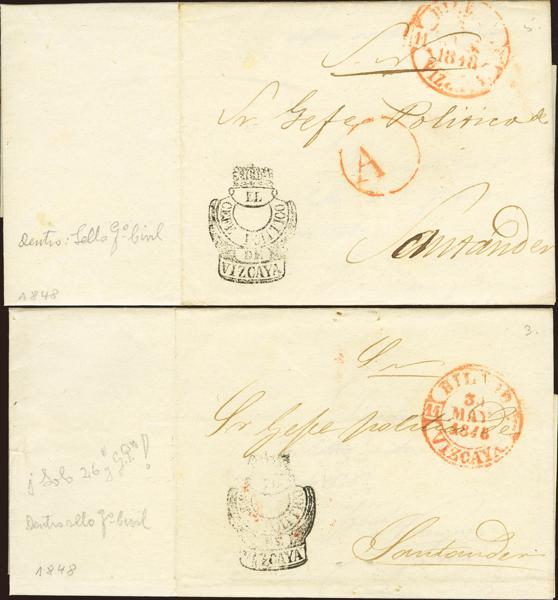 BILBAO
11
1848
VIZCAYA
S. N.
Sr Gefe Politico de
A
EL
GEFE POLITICO
DE
VIZCAYA
Santander
Dentro: Sello Gº Civil
1848
3.
S. N.
BILBAO
3
MAY
1848
VIZCAYA
Sr Gefe politico de
¡Solo 26
!
Dentro sello Gº Civil
EL
POLITICO
DE
VIZCAYA
Santander
1848